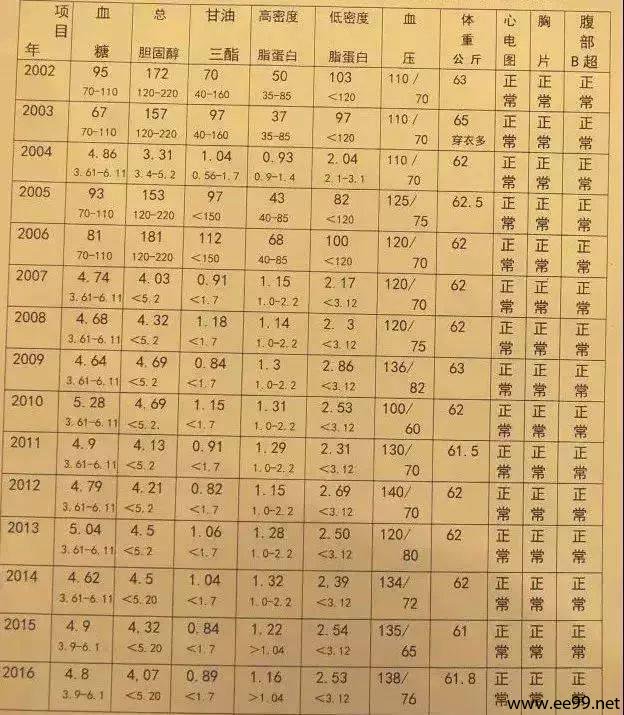 项目 血 总 甘油 高密度 低密度 血 体重 心电图 胸 腹部
年 糖 胆固醇 三酯 脂蛋白 脂蛋白 压 公斤 片 B超
2002 95 172 70 50 103 110/ 63 正 正 正
70-110 120-220 40-160 35-85 <120 70 常 常 常
2003 67 157 97 37 97 110/ 65 正 正 正
70-110 120-220 40-160 35-85 <120 70 穿衣多 常 常 常
2004 4.86 3.31 1.04 0.93 2.04 110/ 62 正 正 正
3.61-6.11 3.4-5.2 0.56-1.7 0.9-1.4 2.1-3.1 70 常 常 常
2005 93 153 97 43 82 125/ 62.5 正 正 正
70-110 120-220 <150 40-85 <120 75 常 常 常
2006 81 181 112 68 100 120/ 62 正 正 正
70-110 120-220 <150 40-85 <120 70 常 常 常
2007 4.74 4.03 0.91 1.15 2.17 120/ 62 正 正 正
3.61-6.11 <5.2 <1.7 1.0-2.2 <3.12 70 常 常 常
2008 4.68 4.32 1.18 1.14 2. 3 120/ 62 正 正 正
3.61-6.11 <5.2 <1.7 1.0-2.2 <3.12 75 常 常 常
2009 4.64 4.69 0.84 1.3 2.86 136/ 63 正 正 正
3.61-6.11 <5.2 <1.7 1.0-2.2 <3.12 82 常 常 常
2010 5.28 4.69 1.15 1.31 2.53 100/ 62 正 正 正
3.61-6.11 <5.2. <1.7 1.0-2.2 <3.12 60 常 常 常
2011 4.9 4.13 0.91 1.29 2.31 130/ 61.5 正 正 正
3.61-6.11 <5.2 <1.7 1.0-2.2 <3.12 70 常 常 常
2012 4.79 4.21 0.82 1.15 2.69 140/ 62 正 正 正
3.61-6.11 <5.2 <1.7 1.0-2.2 <3.12 70 常 常 常
2013 5.04 4.5 1.06 1.28 2.50 120/ 62 正 正 正
3.61-6.11 <5.2 <1.7 1.0-2.2 <3.12 80 常 常 常
2014 4.62 4.5 1.04 1.32 2,39 134/ 62 正 正 正
3.61-6.11 <5.20 <1.7 1.0-2.2 <3.12 72 常 常 常
2015 4.9 4,32 0.84 1.22 2.54 135/ 61 正 正 正
3.9-6.1 <5.20 <1.7 >1.04 <3.12 65 常 常 常
2016 4.8 4,07 0.89 1.16 2.53 138/ 61.8 正 正 正
3.9-6.1 <5.20 <1.7 >1.04 <3.12 76 常 常 常
www.ee99.net